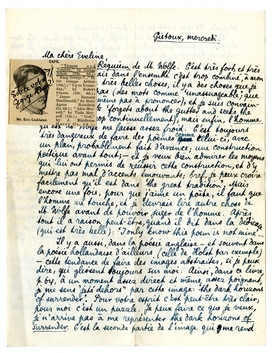 Giétoux, mercredi.
Ma chère Eveline,
Requiem de M. Wolfe. C'est très fort, et très
mais dans l'ensemble c'est trop combiné, à mon
très belles choses, il y a des choses que je
pas (des mots comme 'unassuageable', que
même pas à prononcer), et je suis convain-
'forgets about the gutter and seeks the
continuellement), mais enfin, l'homme
M. Wolfe me laisse assez froid. C'est toujours
très dangereux de faire des poèmes avec
un plan, probablement fait d'avance, une construction
poétique avant tout – et je veux bien admirer les moyens
qui lui ont permis de réussir cette construction, et d'y
mettre pas mal d'accents émouvants; bref, je peux croire
facilement qu'il est dans 'the great tradition' mais
encore une fois, pour que j'aime un poète, il faut que
l'homme me touche, et je devrais lire autre chose de
M. Wolfe avant de pouvoir juger de l'homme. Après
tout il a raison peut-être, quand il dit dans la Dédicace
(qui est très belle): 'I only know this poem is not mine'.
Il y a aussi, dans la poésie anglaise – et souvent dans
la poésie hollandaise d'ailleurs (celle de Holst par exemple)
cette tendance de faire des images abstraites, si je puis
dire, qui glissent toujours sur moi. Ainsi, dans ce livre,
p. 107, à un moment assez direct et même assez poignant,
je me sens 'put indoors' par cette image: 'the dark horizons
of surrender'. Pour votre esprit c'est peut-être très clair,
pour moi c'est un puzzle. Je peux faire ce que je veux,
je n'arrive pas à me représenter the dark horizons of
surrender. C'est la seconde partie de l'image qui me rend